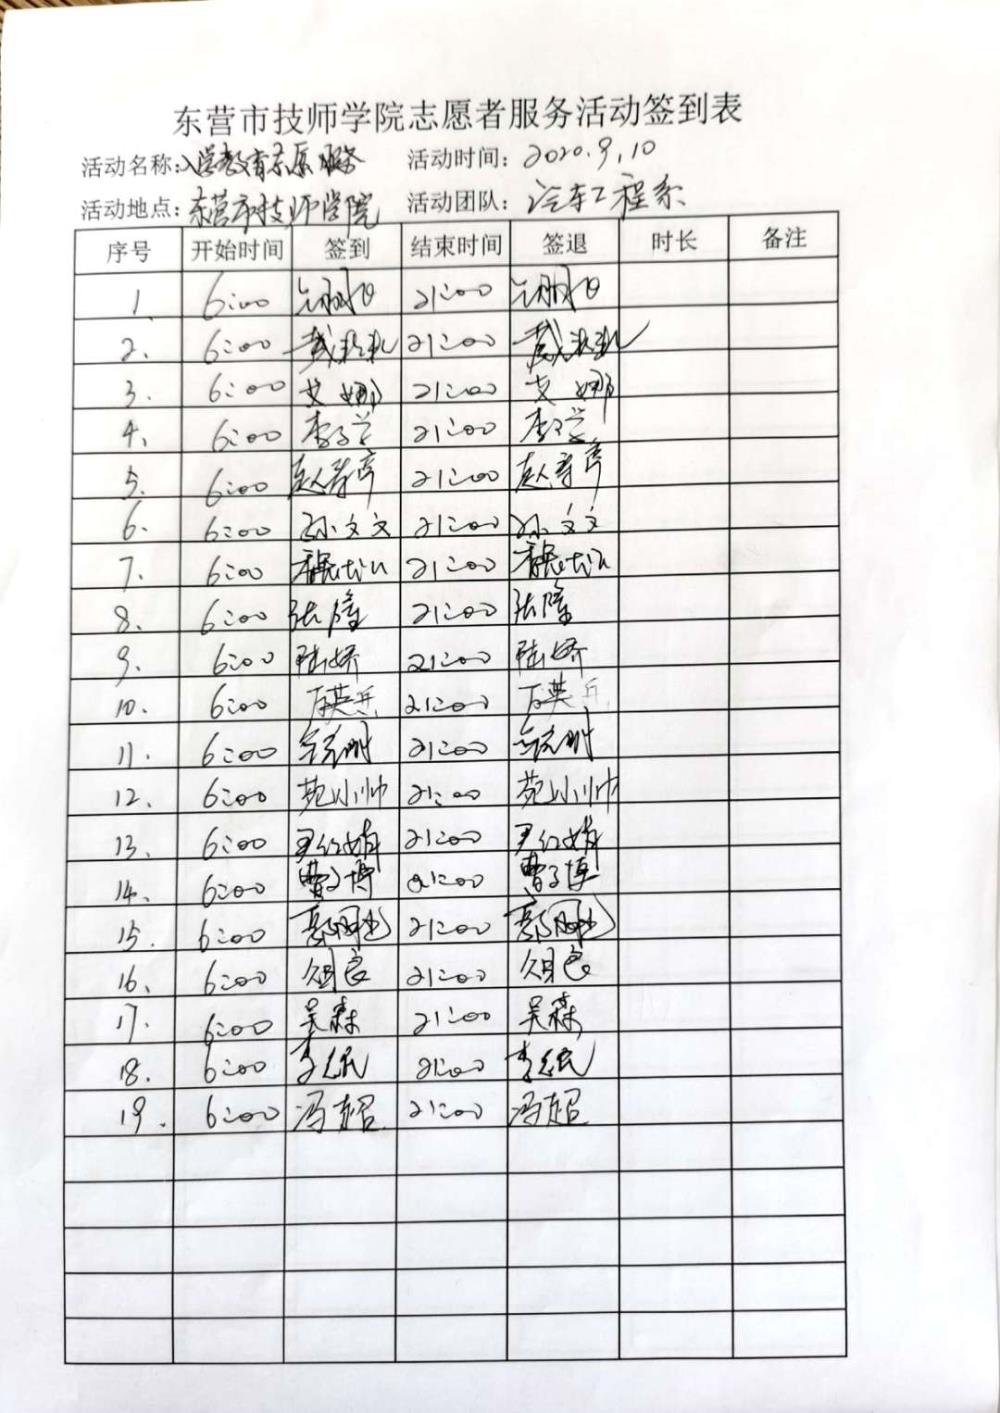 东营市技师学院志愿者服务活动签到表
活动名称:入学教育志愿服务 活动时间:2020.9.10
活动地点:东营市技师学院 活动团队:汽车工程系
序号 开始时间 签到 结束时间 签退 时长 备注
1. 6:00 21:00
2. 6:00 21:00
3. 6:00 艾娜 21:00 艾娜
4. 6:00 李学 21:00 李学
5. 6:00 21:00
6. 6:00 孙文文 21:00 孙文文
7. 6:00 21:00
8. 6:00 张隆 21:00 张隆
9. 6:00 陆娇 21:00 陆娇
10. 6:00 21:00
11. 6:00 21:00
12. 6:00 范小帅 21:00 范小帅
13. 6:00 尹红娟 21:00 尹红娟
14. 6:00 曹子博 21:00 曹子博
15. 6:00 21:00
16. 6:00 21:00
17. 6:00 吴森 21:00 吴森
18. 6:00 21:00
19. 6:00 冯超 21:00 冯超